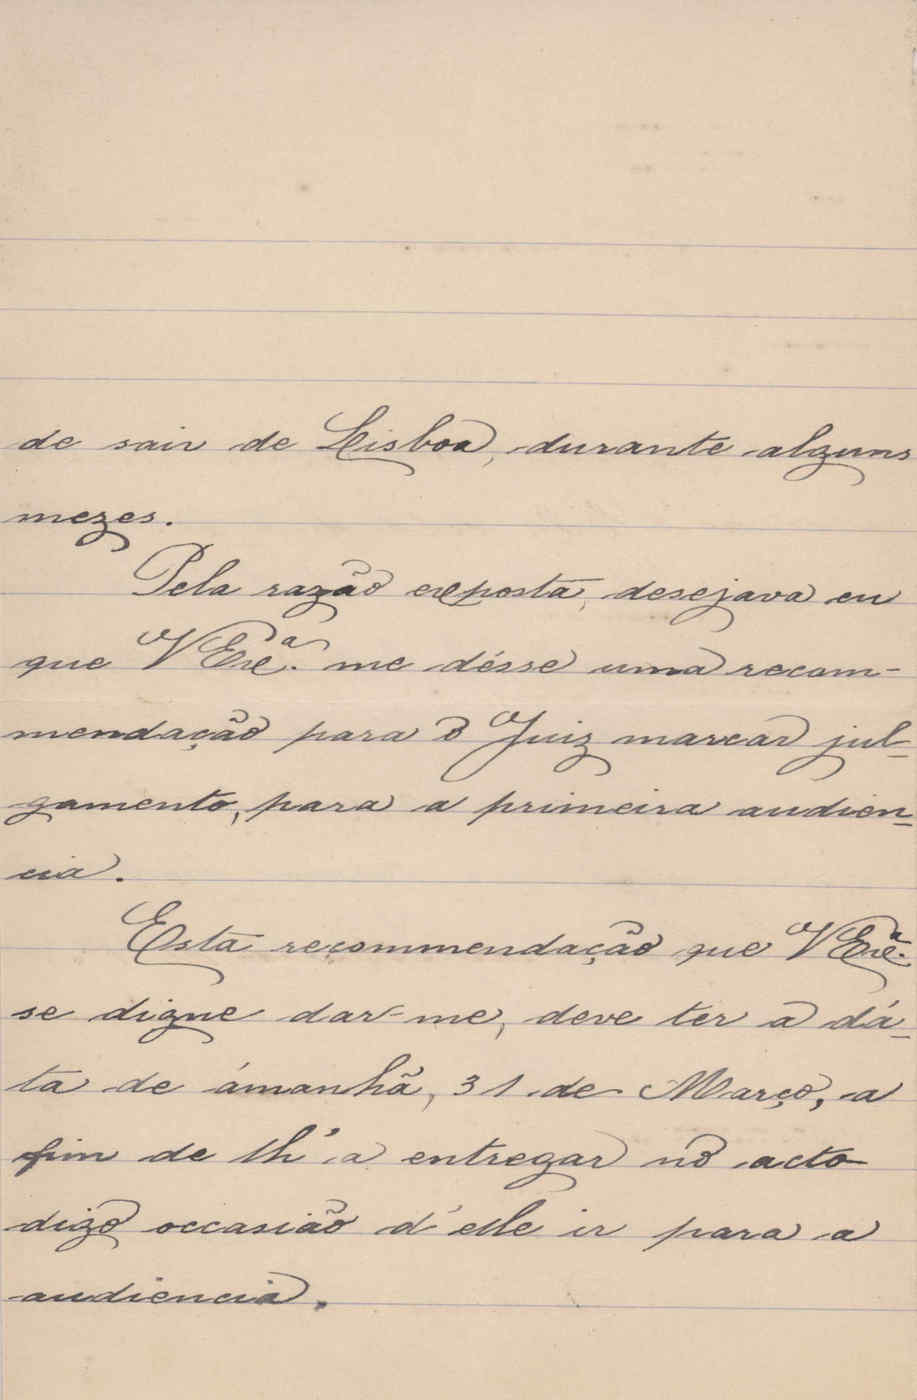 de sair de Lisboa, durante alguns
mezes.
Pela razão exposta, desejava eu
que V Exc.ª me désse uma recom-
mendação para o Juiz marcar jul-
gamento, para a primeira audien-
cia.
Esta recommendação que V Exc.ª
se digne dar-me, deve ter a dá-
ta de ámanhã, 31 de Março, a
fim de lh'a entregar no acto
digo occasião d'elle ir para a
audiencia.